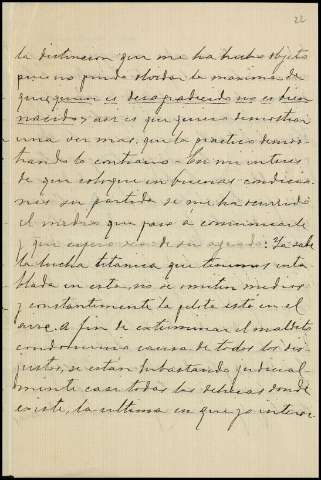 22
la distincion que me ha hecho objeto
pues no puedo olvidar la maxima de
que quien es desagradecido no es bien
nacido, y asi es que quiero demostrar
una vez mas, que la practico demos-
trando lo contrario. En mi interes
de que coloque en buenas condicio-
nes su partida se me ha ocurrido
el medio que paso á comunicarle
y que espero sea de su agrado: Ya sabe
la lucha titanica que tenemos enta
blada en esta, no se omiten medios
y constantemente la pelota está en el
aire. A fin de exterminar el maldito
condominio causa de todos los dis-
justos, se estan subastando judicial-
mente casi todas las dehesas donde
existe, la ultima en que yo